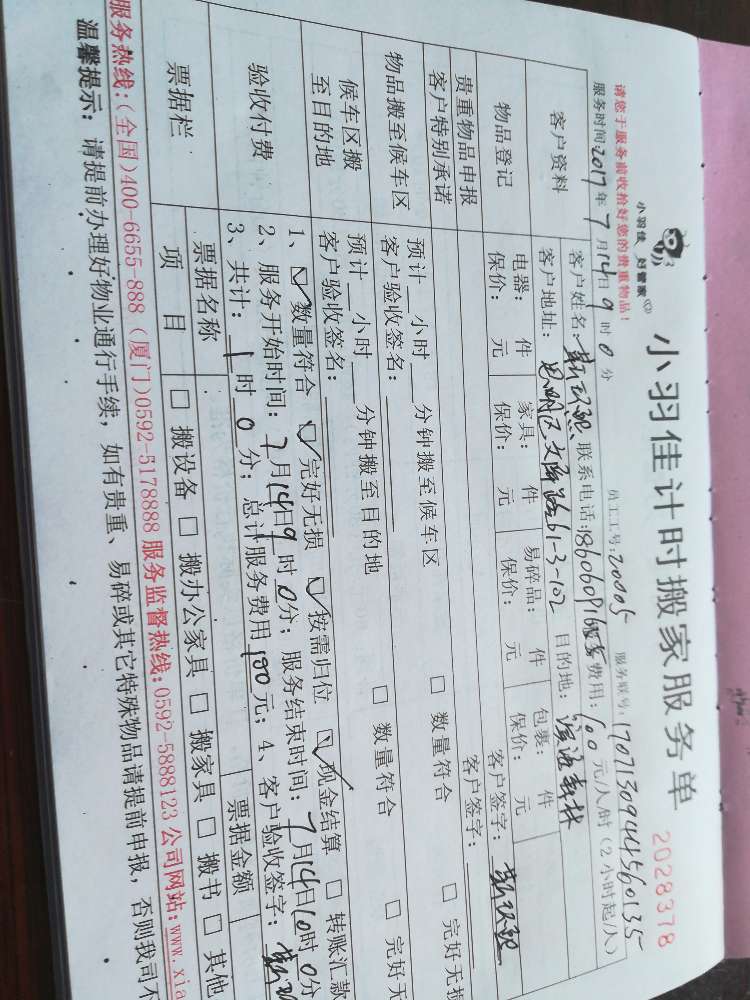 小羽佳 好管家
小羽佳计时搬家服务单
2028378
请您于服务前收拾好您的贵重物品！
员工工号：20005 服务联号：17071309444560135
服务时间：2017年7月14日9时0分
客户资料
客户姓名： 联系电话： 服务费用：100元/人/时（2小时起/人）
客户地址：思明区文屏路61-3-102 目的地：
物品登记
电器： 件 家具： 件 易碎品： 件 包裹： 件
保价： 元 保价： 元 保价： 元 保价： 元
客户签字：
贵重物品申报
客户特别承诺
客户签字：
物品搬至候车区
预计 小时 分钟搬至候车区 □ 数量符合 □ 完好无损
客户验收签名：
候车区搬
至目的地
预计 小时 分钟搬至目的地 □ 数量符合 □ 完好无
客户验收签名：
验收付费
1、☑ 数量符合 ☑ 完好无损 ☑ 按需归位 ☑ 现金结算 □ 转账汇款
2、服务开始时间：7月14日9时0分；服务结束时间：7月14日10时0分
3、共计：1时0分；总计服务费用100元；4、客户验收签字：
票据栏
票据名称 票据金额
项目 □ 搬设备 □ 搬办公家具 □ 搬家具 □ 搬书 □ 其他
服务热线：(全国)400-6655-888 (厦门)0592-5178888 服务监督热线：0592-5888123 公司网站：www.xia
温馨提示：请提前办理好物业通行手续，如有贵重、易碎或其它特殊物品请提前申报，否则我司不